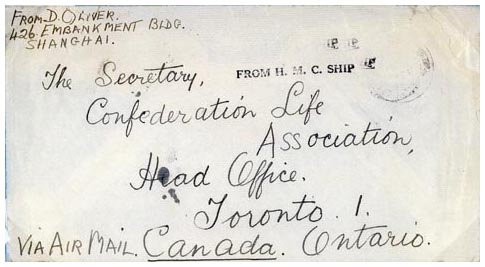 FROM D. OLIVER.
426 EMBANKMENT BLDG.
SHANGHAI.
FROM H. M. C. SHIP
The Secretary,
Confederation Life
Association,
Head Office.
Toronto. 1.
VIA AIR MAIL. Canada. Ontario.